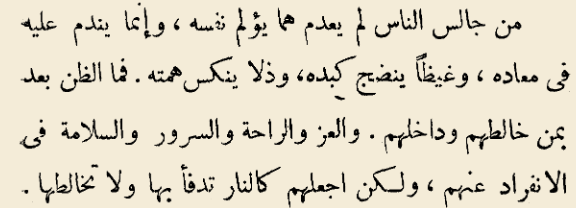 من جالس الناس لم يعدم هما يؤلم نفسه ، وإنما يندم عليه
فى معاده ، وغيظاً ينضج كبده، وذلا ينكس همته . فما الظن بعد
بمن خالطهم وداخلهم . والعز والراحة والسرور والسلامة فى
الانفراد عنهم ، ولكن اجعلهم كالنار تدفأ بها ولا تخالطها .